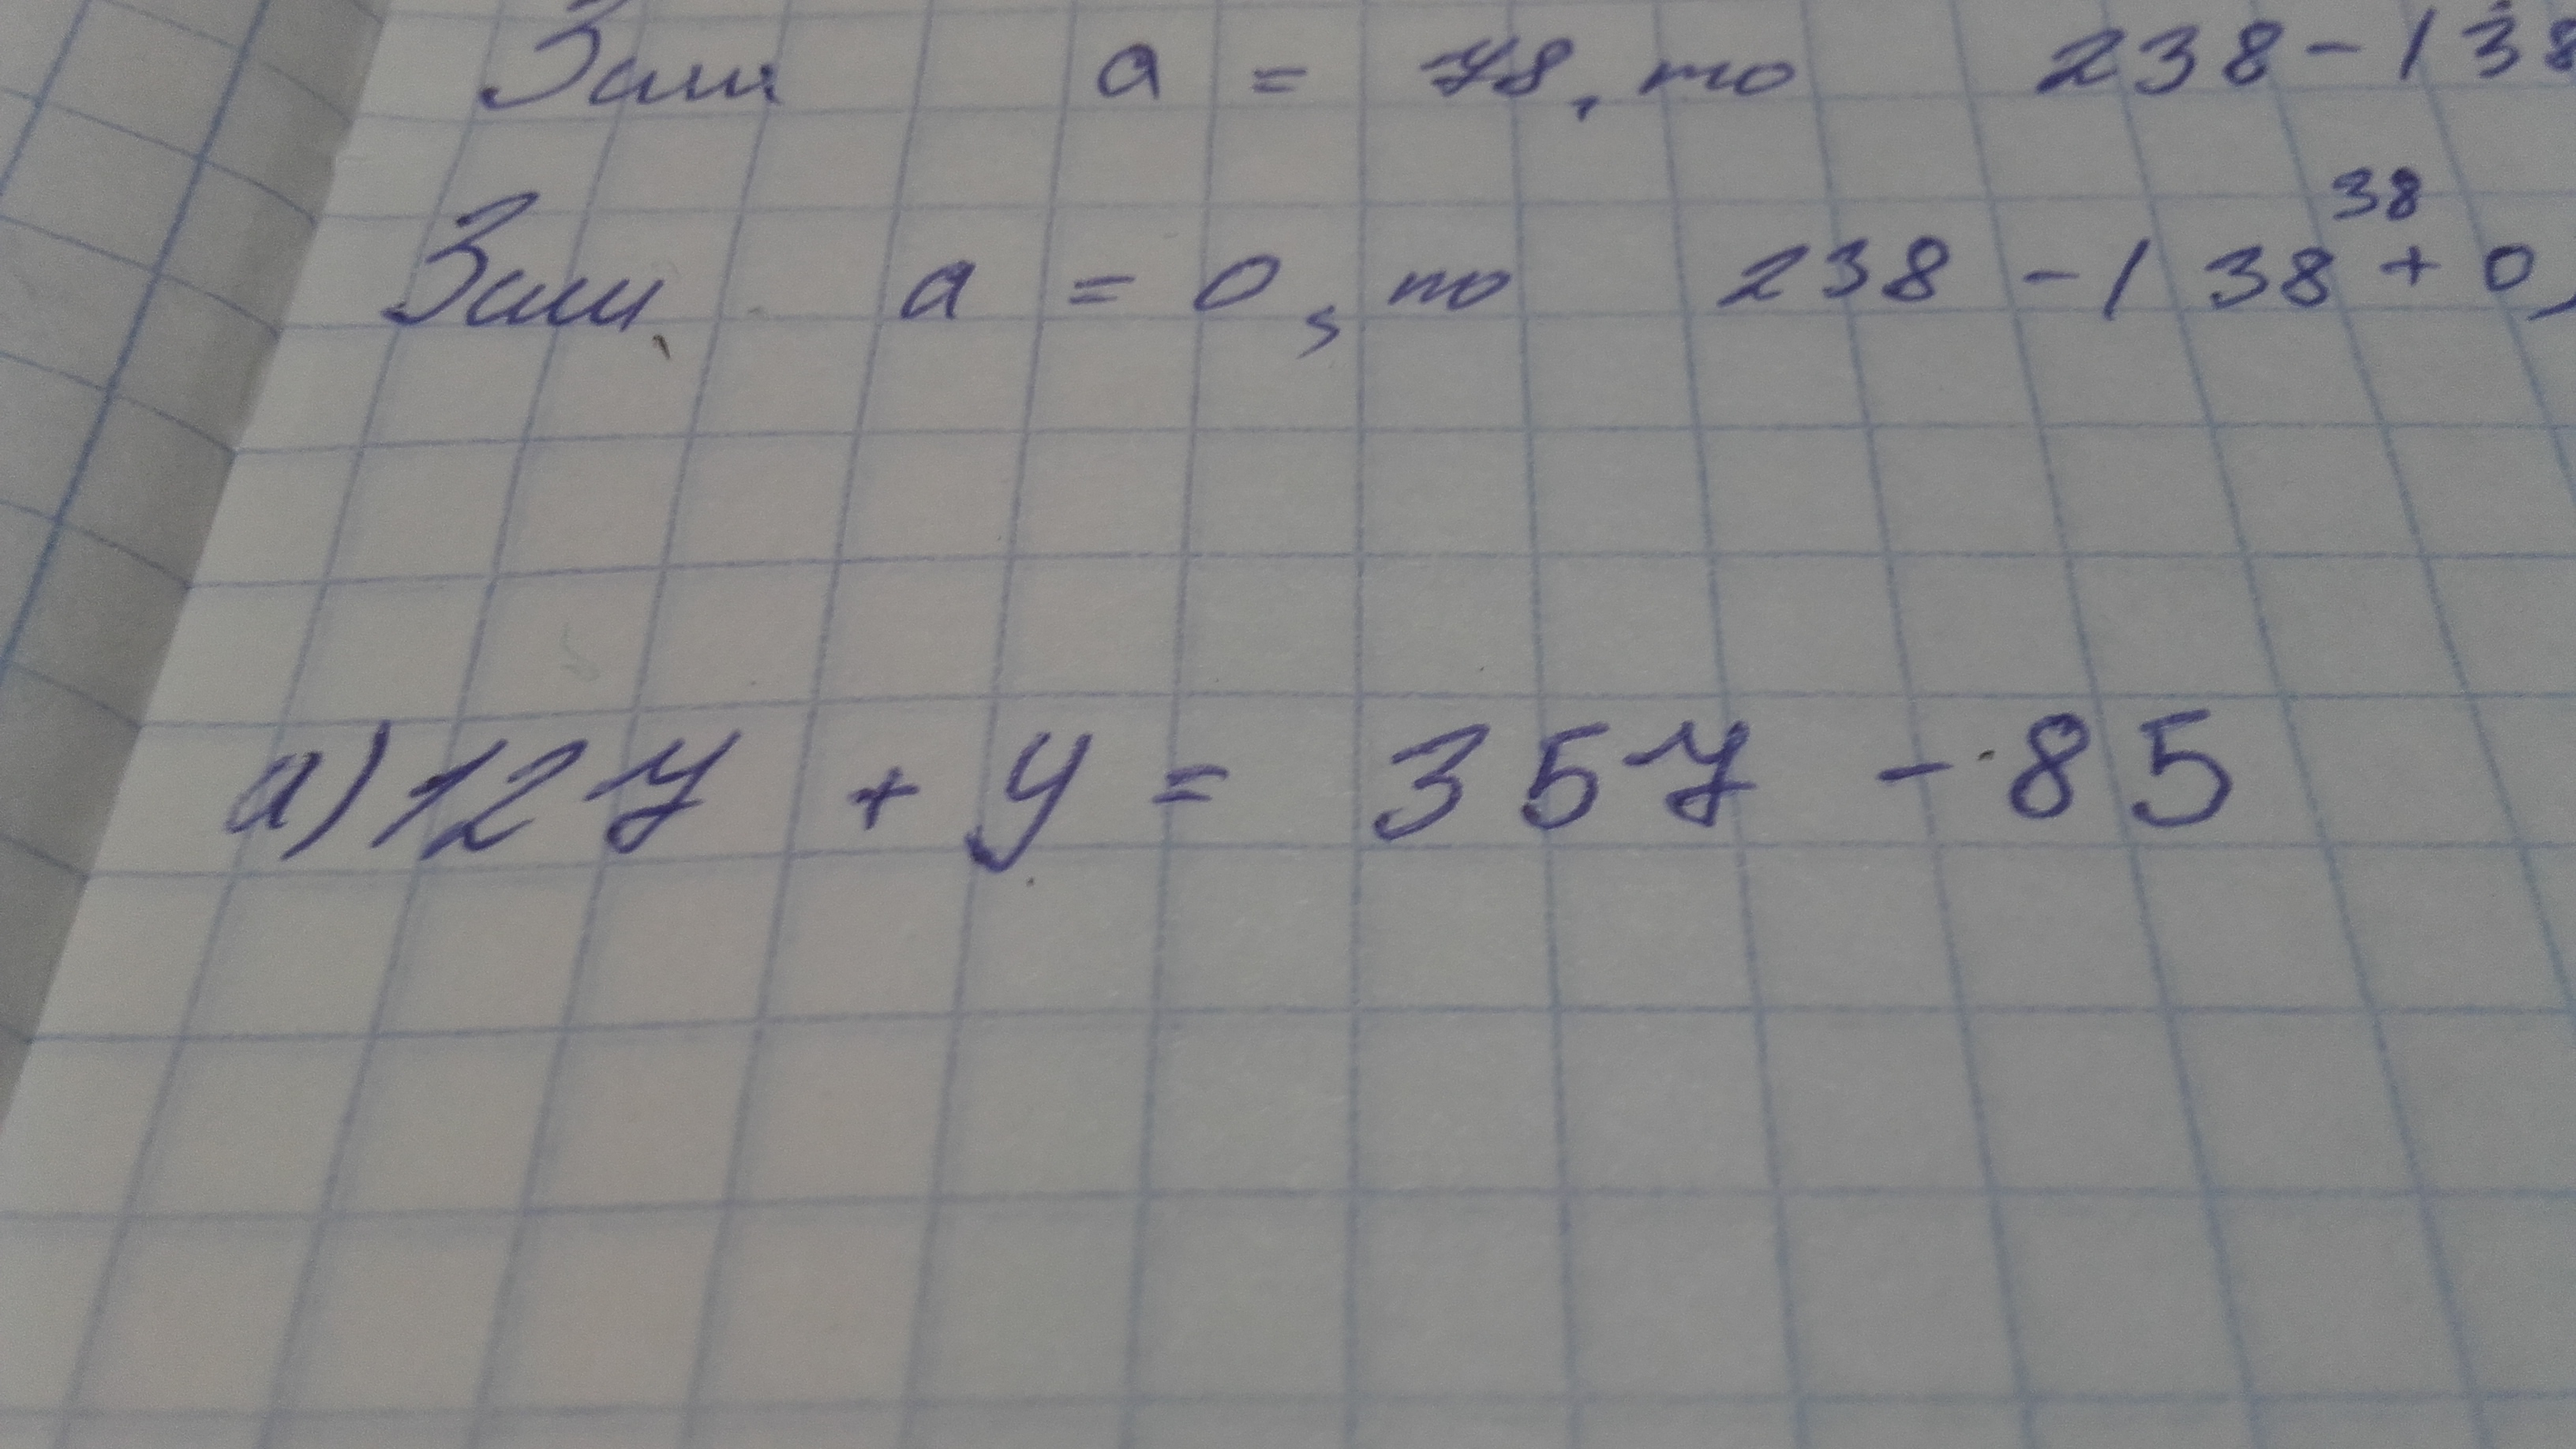 Зам a = 78, то 238-138
Зам. a = 0, то 238-138 + 0,
38
а) 127 + y = 357 - 85